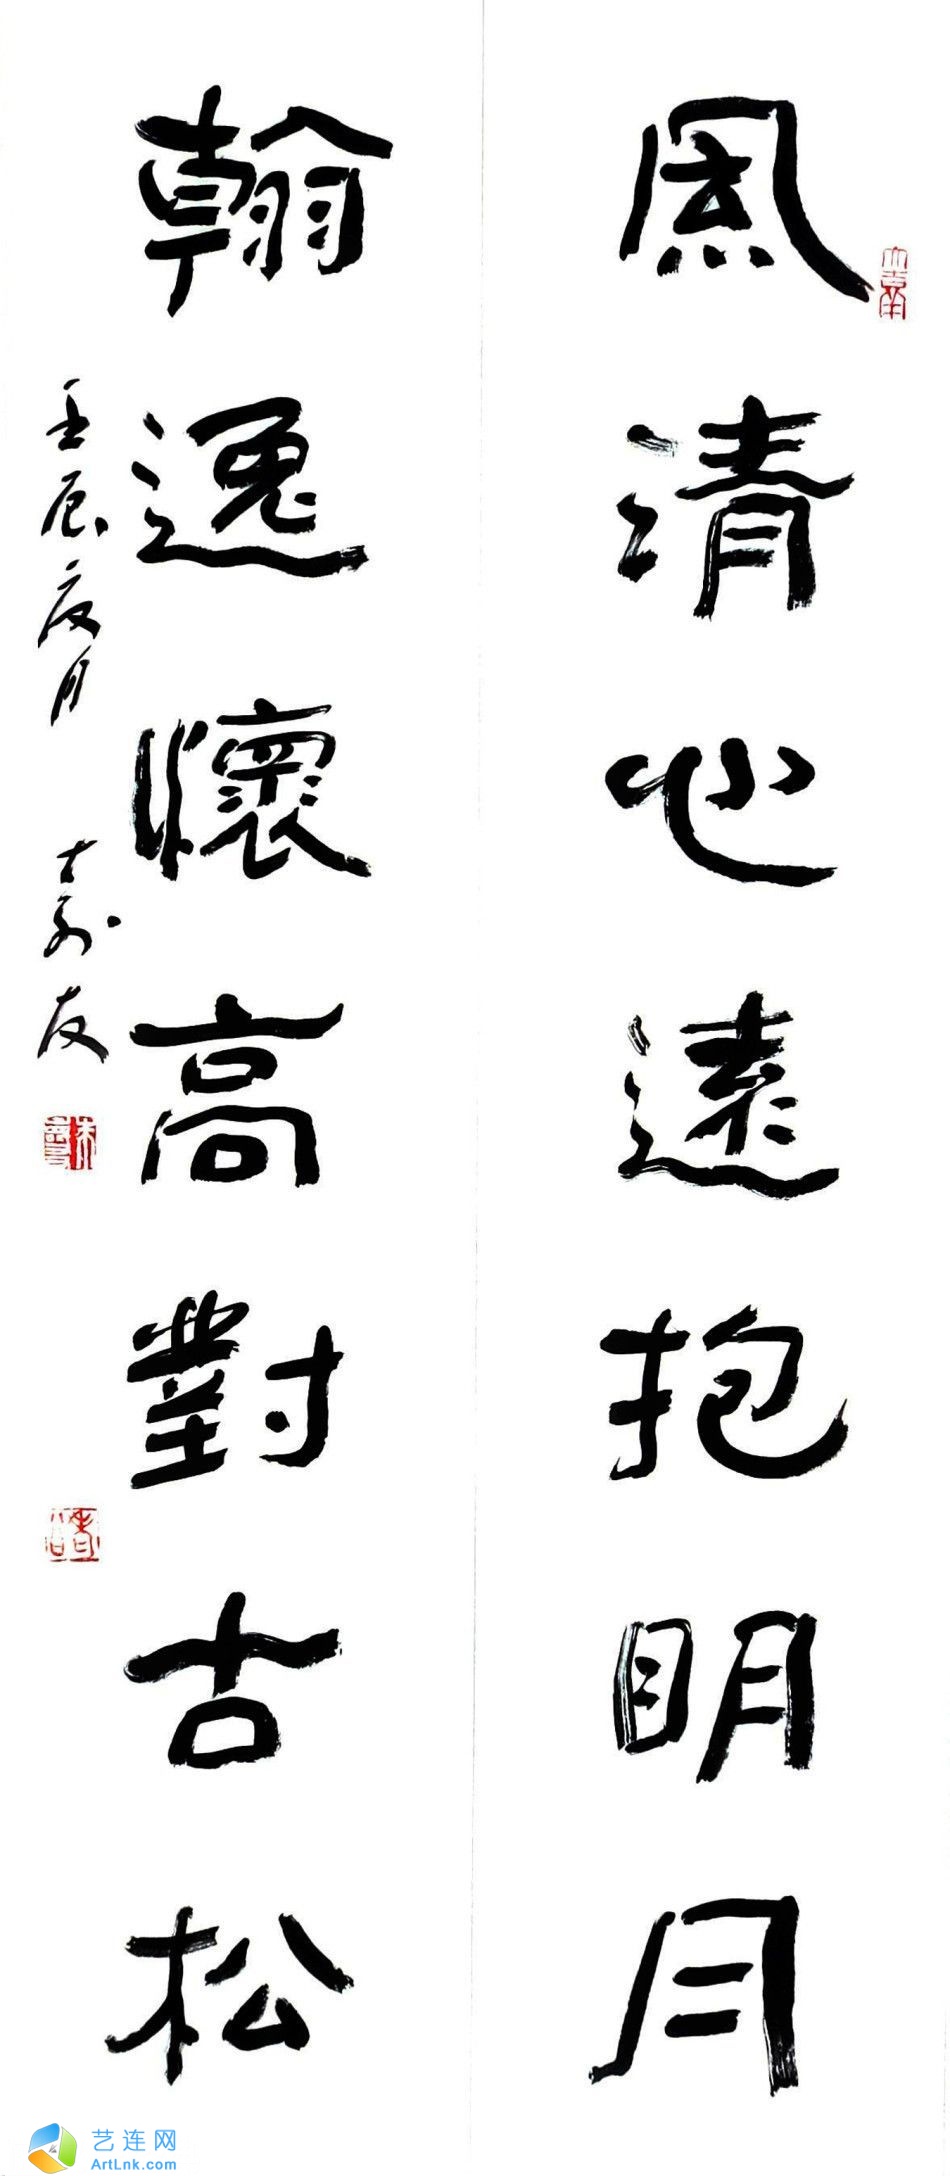 風清心遠抱明月
翰逸懷高對古松
壬辰夏月
艺连网
ArtLnk.com